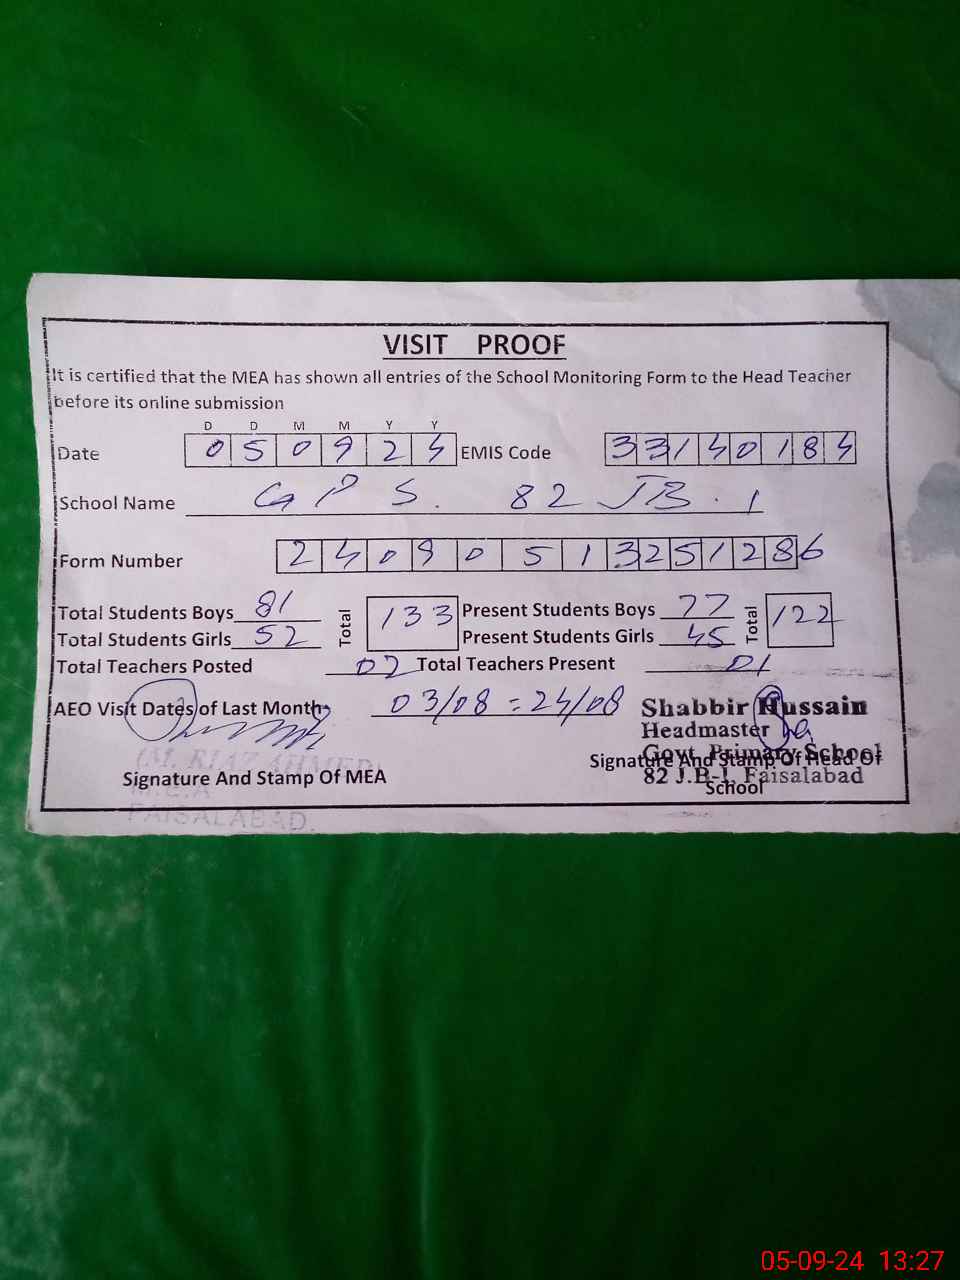 VISIT PROOF
It is certified that the MEA has shown all entries of the School Monitoring Form to the Head Teacher
before its online submission
D D M M Y Y
Date 050924 EMIS Code 33140184
School Name GPS. 82 JB. 1
Form Number 24090513251286
Total Students Boys 81 Total 133 Present Students Boys 77 Total 122
Total Students Girls 52 Present Students Girls 45
Total Teachers Posted 02 Total Teachers Present 01
AEO Visit Dates of Last Month: 03/08 = 24/08
Shabbir Hussain
Headmaster
Govt. Primary School
82 J.B-I, Faisalabad
(M. RIAZ AHMED)
M.E.A
FAISALABAD.
Signature And Stamp Of MEA
Signature And Stamp Of Head Of
School
05-09-24 13:27